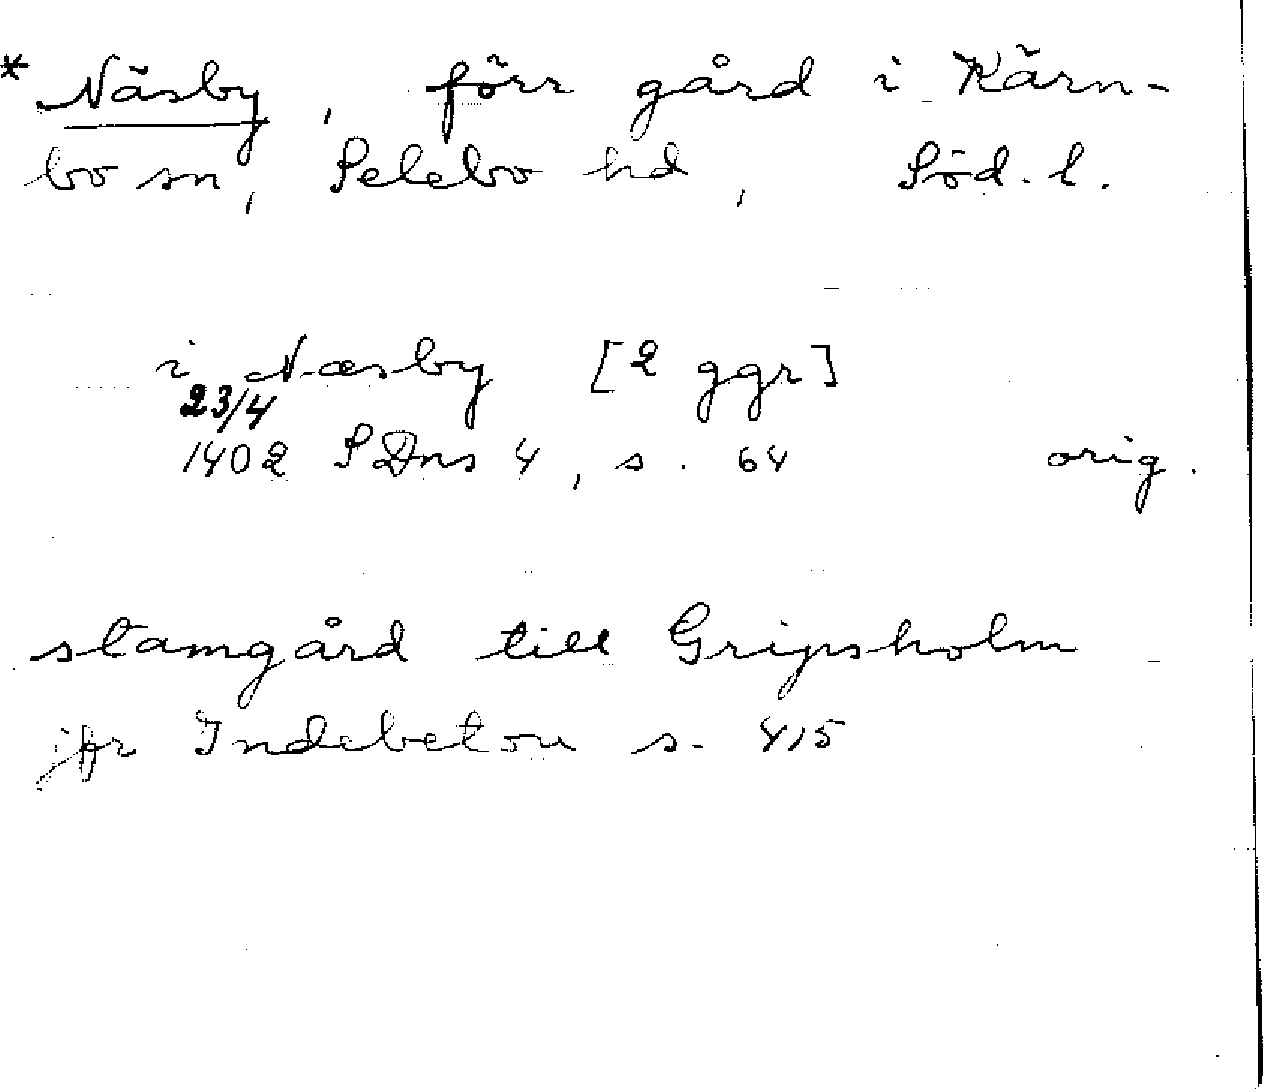 * Näsby, förr gård i Kärn-
bo sn, Selebo hd, Söd. l.
i Næsby [2 ggr]
23/4
1402 SDns 4, s. 64 orig.
stamgård till Gripsholm
jfr Indebetou s. 415